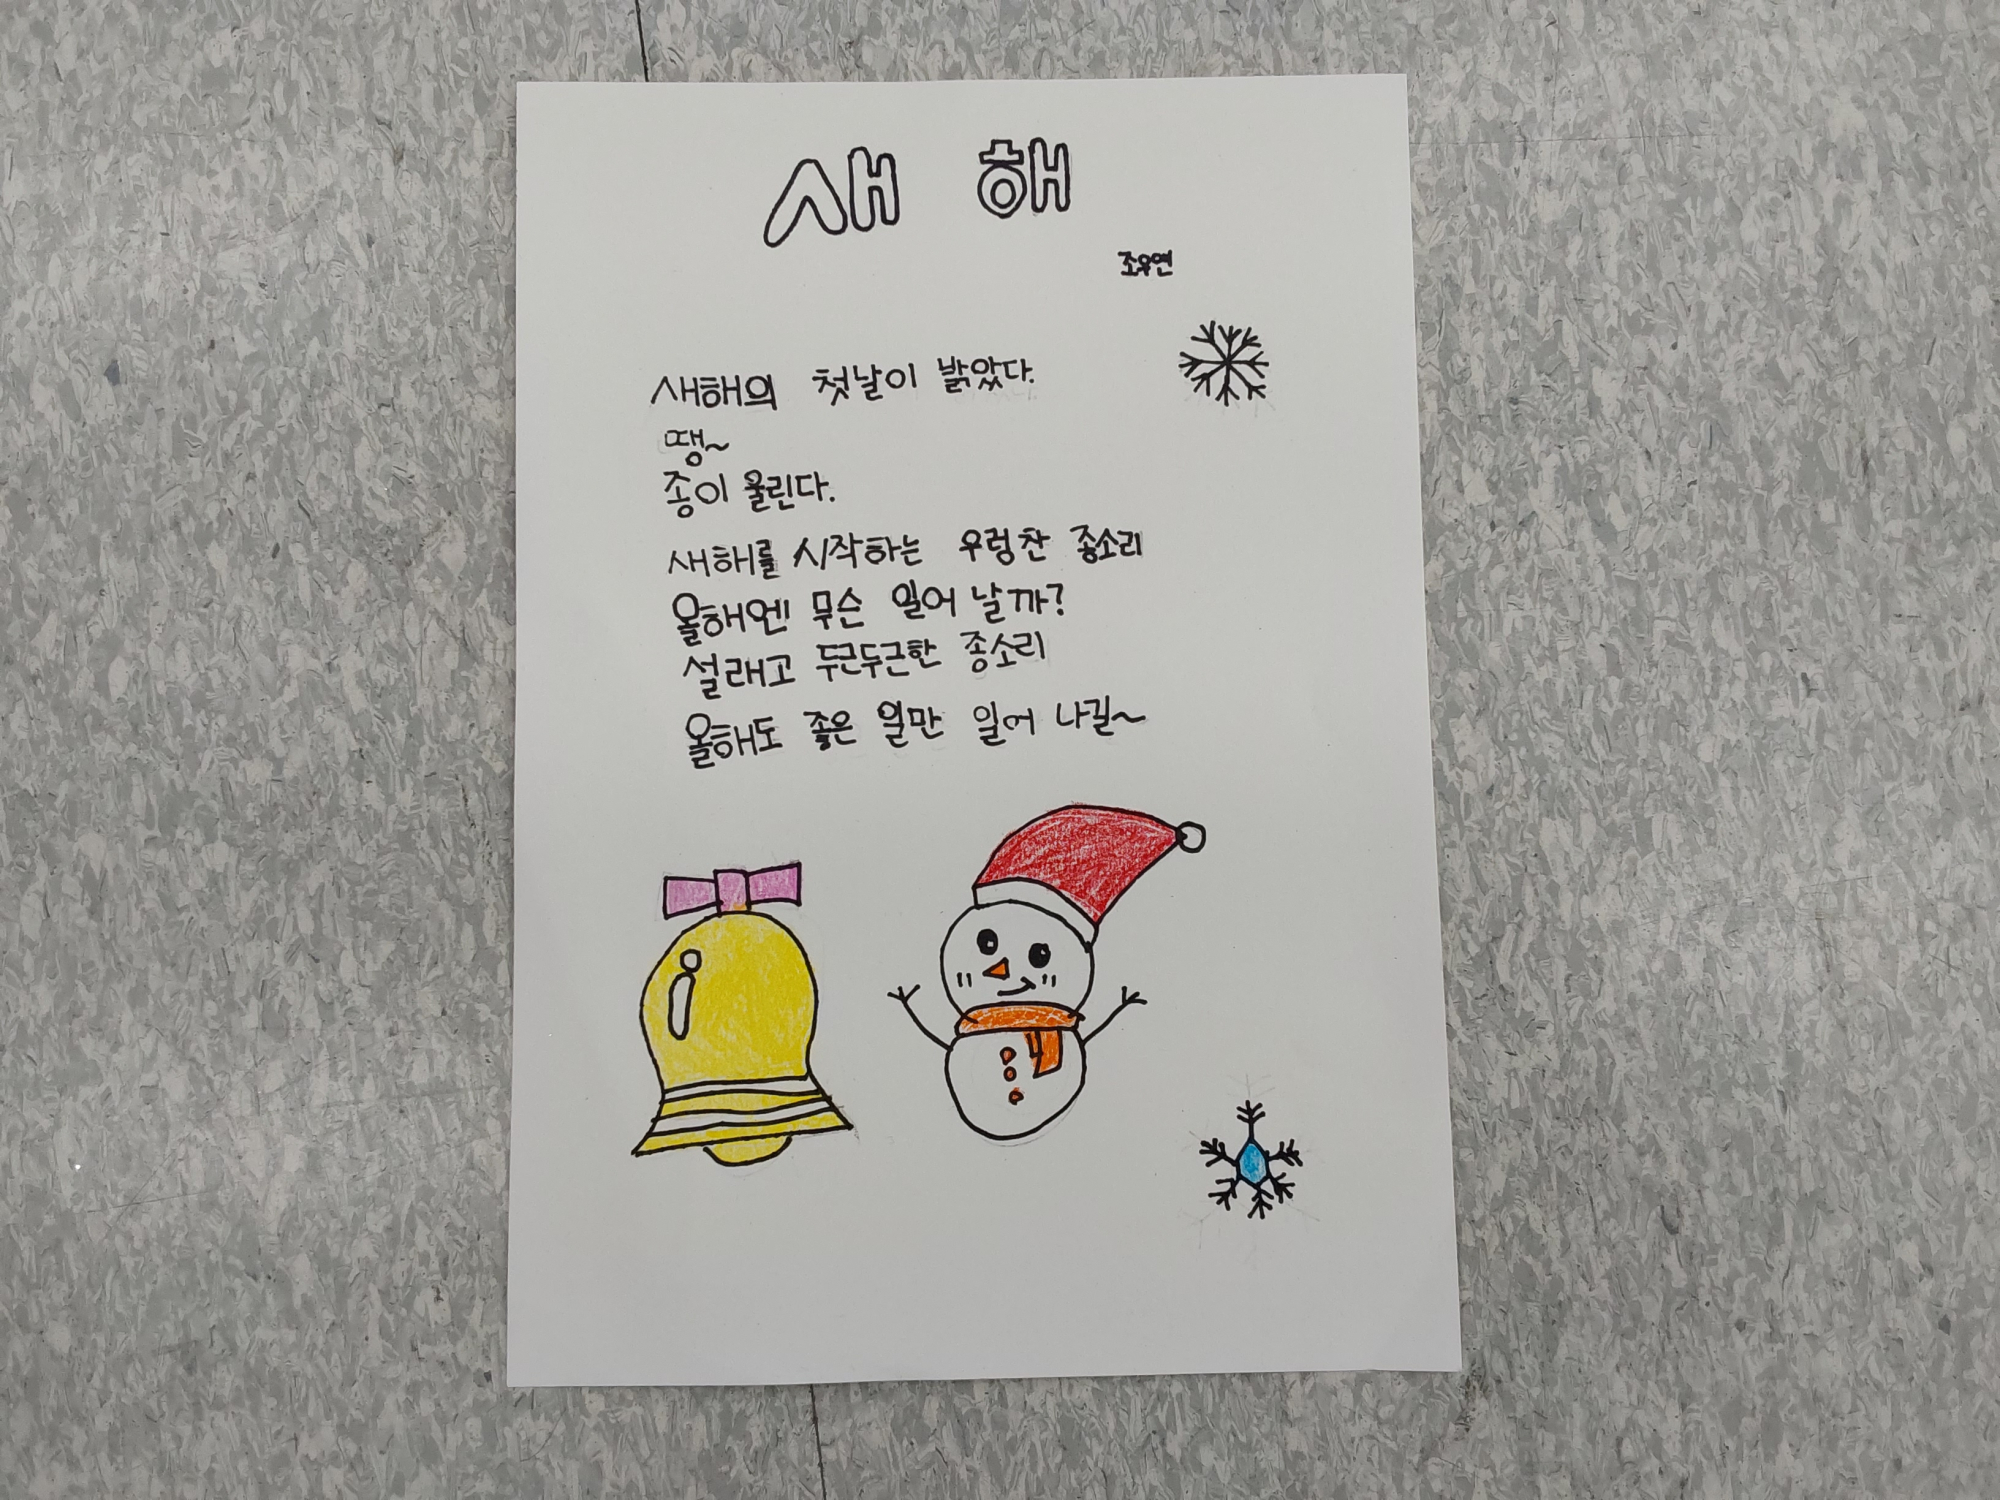 새해
조우연
새해의 첫날이 밝았다.
땡~
종이 울린다.
새해를 시작하는 우렁찬 종소리
올해엔 무슨 일어 날까?
설래고 두근두근한 종소리
올해도 좋은 일만 일어 나길~